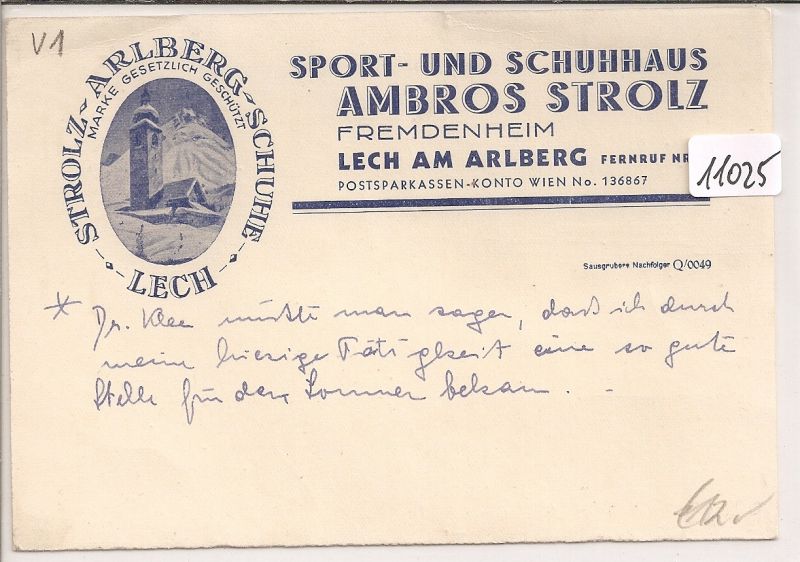 V1
STROLZ-ARLBERG-SCHUHE
MARKE GESETZLICH GESCHÜTZT
LECH
SPORT- UND SCHUHHAUS
AMBROS STROLZ
FREMDENHEIM
LECH AM ARLBERG FERNRUF NR
POSTSPARKASSEN-KONTO WIEN No. 136867
11025
Sausgrubers Nachfolger Q/0049
* Dr. Klee müßte man sagen, daß ich durch
meine hiesige Tätigkeit eine so gute
Stelle für den Sommer bekam. -